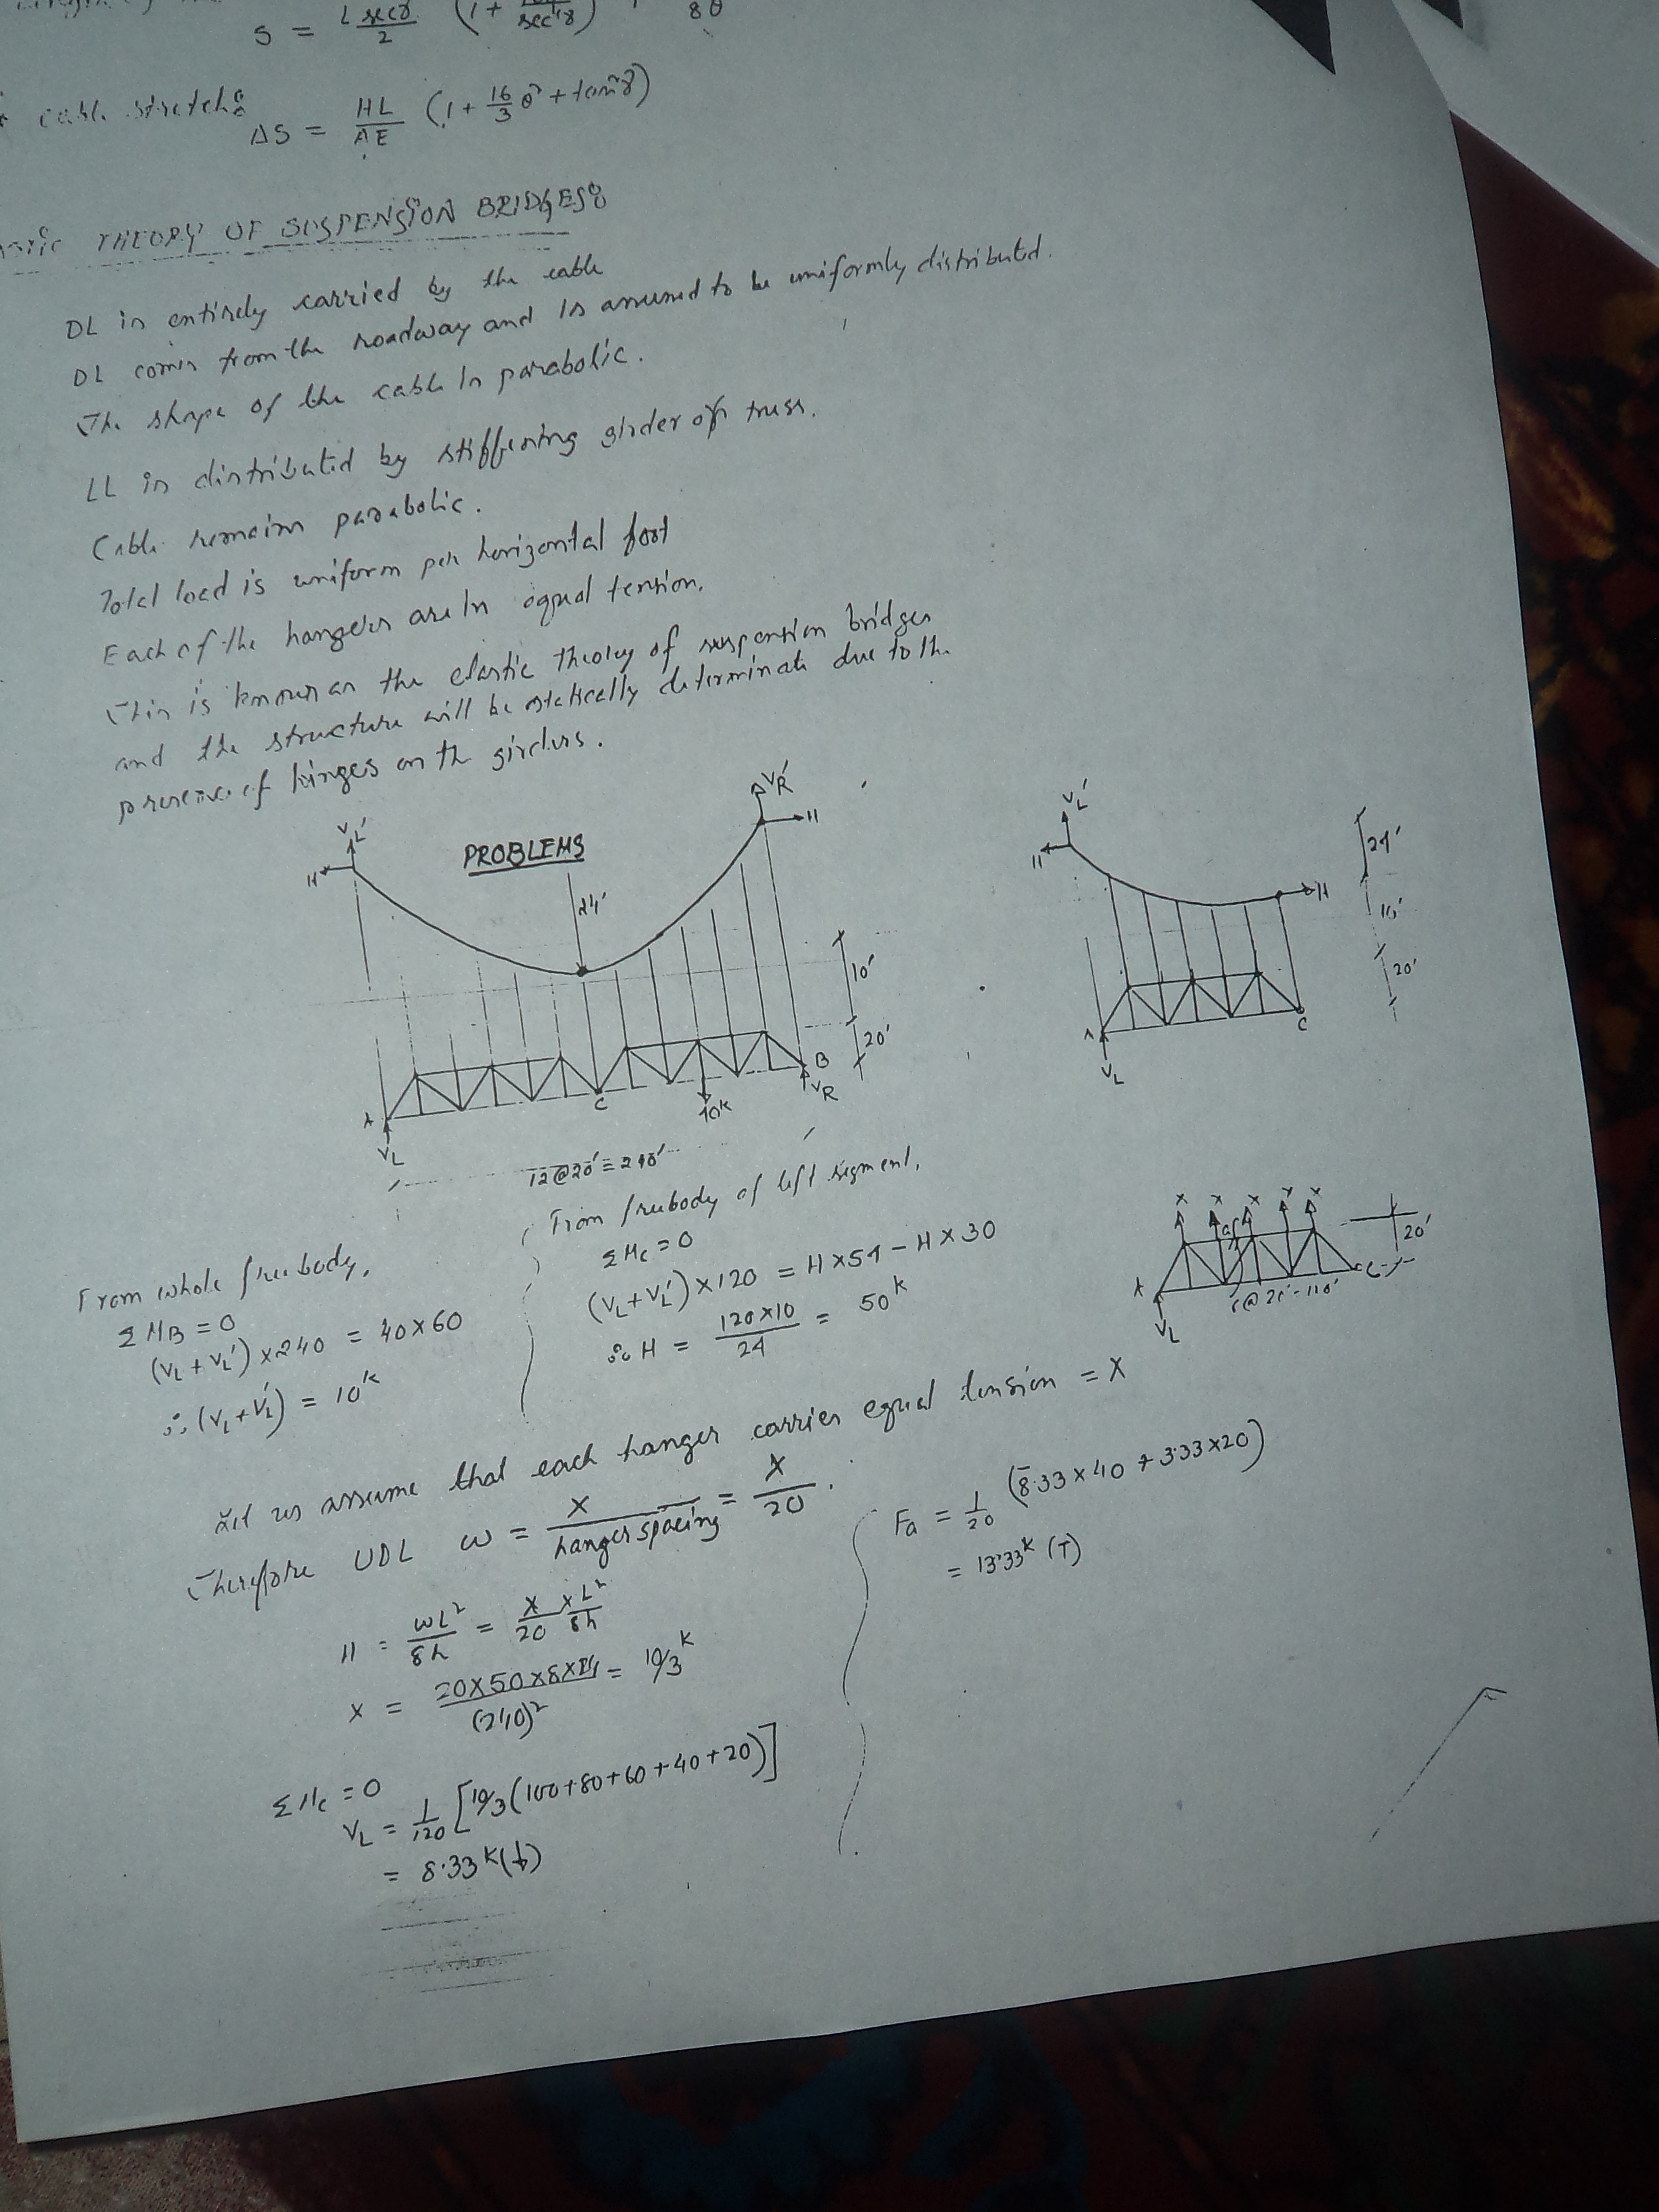 S = L secγ / 2 (1 +
sec⁴γ)
8θ
cable stretch:
ΔS = HL/AE (1 + 16/3 θ² + tan²γ)
THEORY OF SUSPENSION BRIDGES:
DL is entirely carried by the cable
DL comes from the roadway and is assumed to be uniformly distributed.
The shape of the cable is parabolic.
LL is distributed by stiffening girder or truss.
Cable remains parabolic.
Total load is uniform per horizontal foot
Each of the hangers are in equal tension.
This is known as the elastic theory of suspension bridges
and the structure will be statically determinate due to the
presence of hinges on the girders.
PROBLEMS
VL'
H
VR'
H
24'
10'
20'
A
VL
C
40k
B
VR
12@20' = 240'
VL'
H
H
24'
10'
20'
A
VL
C
From whole freebody,
ΣMB = 0
(VL + VL') × 240 = 40 × 60
∴ (VL + VL') = 10k
From freebody of left segment,
ΣMc = 0
(VL + VL') × 120 = H × 54 − H × 30
∴ H = 120×10 / 24 = 50k
X X X X X
A
VL
C
20'
Let us assume that each hanger carries equal tension = X
Therefore UDL ω = X / hanger spacing = X / 20 .
H = ωL² / 8h = X/20 × L²/8h
X = 20×50×8×24 / (240)² = 10/3 k
ΣMc = 0
VL = 1/120 [10/3 (100+80+60+40+20)]
= 8.33k (↓)
Fa = 1/20 (8.33×40 + 3.33×20)
= 13.33k (T)